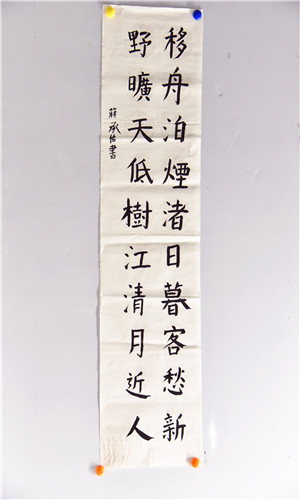 移舟泊煙渚日暮客愁新
野曠天低樹江清月近人
蔣承佑書